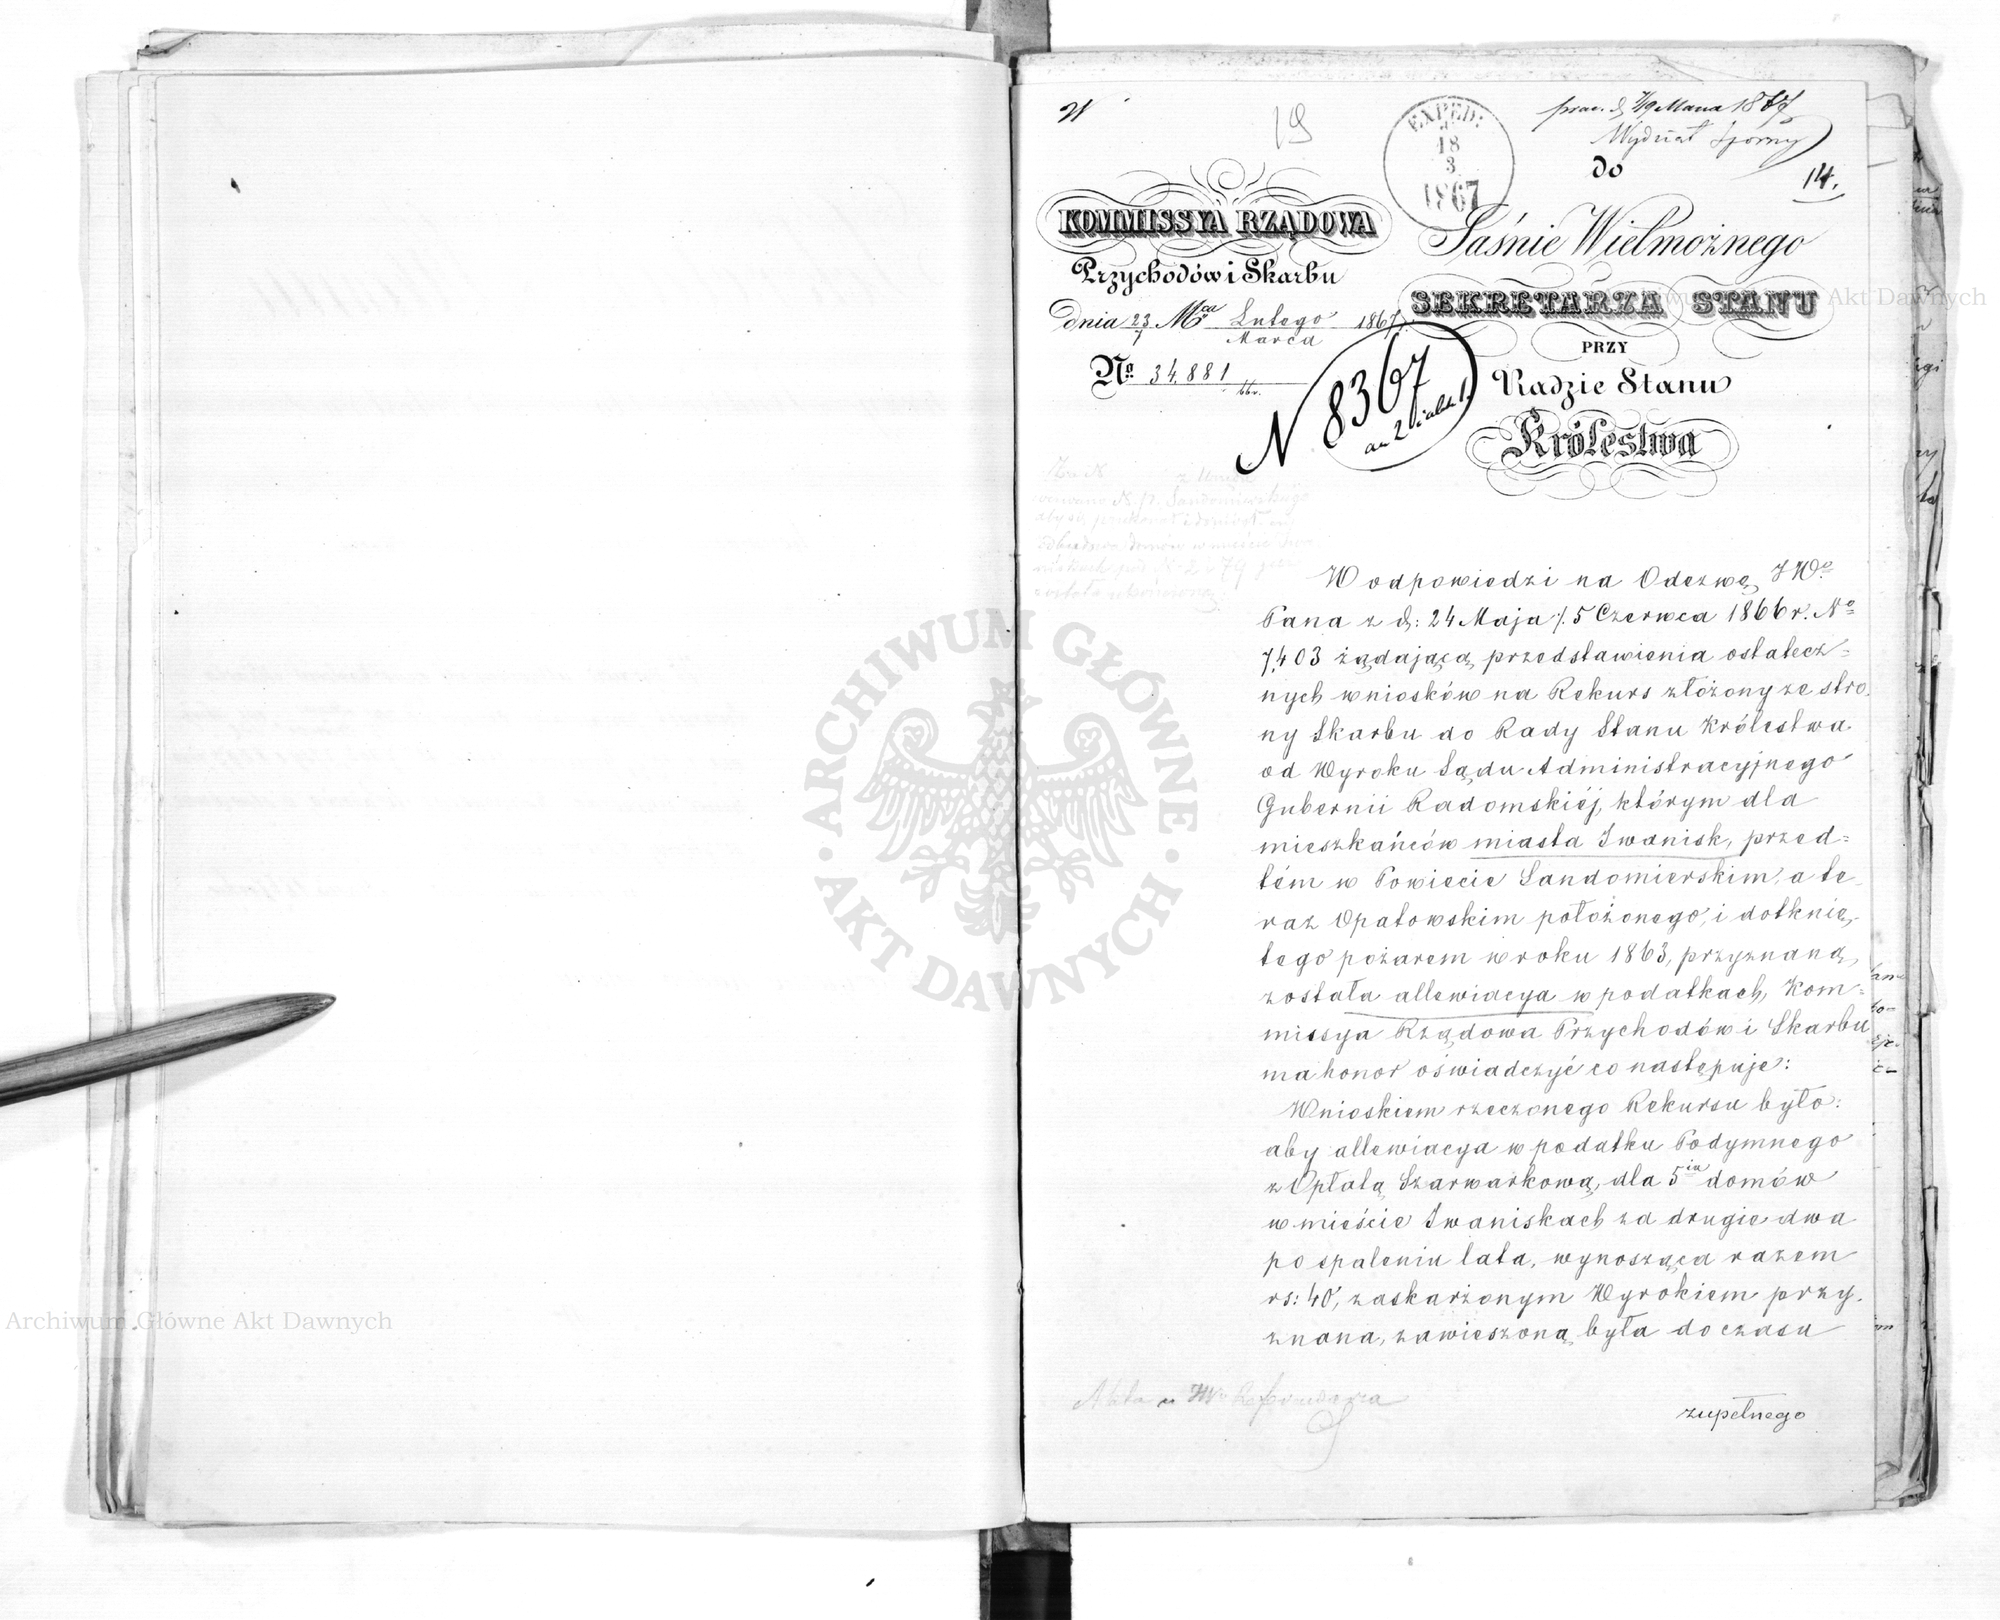 W
19
EXPED:
18
3
1867
prez. d. 7/19 Marca 1867
Wydział Sporny
14.
KOMMISSYA RZĄDOWA
Przychodów i Skarbu
dnia 23/7 Mca Lutego/Marca 1867 r.
No 34,881
N 8367
do
Jaśnie Wielmożnego
SEKRETARZA STANU
PRZY
Radzie Stanu
Królestwa
W odpowiedzi na Odezwę JWo
Pana z d: 24 Maja /. 5 Czerwca 1866 r. No
7,403 żądającą przedstawienia ostatecz=
nych wniosków na Rekurs złożony ze stro,
ny Skarbu do Rady Stanu Królestwa
od Wyroku Sądu Administracyjnego
Gubernii Radomskiéj, którym dla
mieszkańców miasta Iwanisk, przed=
tém w Powiecie Sandomierskim, a te,
raz Opatowskim położonego, i dotknię,
tego pożarem w roku 1863, przyznaną
została allewiacya w podatkach, Kom=
missya Rządowa Przychodów i Skarbu
ma honor oświadczyć co następuje:
Wnioskiem rzeczonego Rekursu było:
aby allewiacya w podatku Podymnego
z Opłatą Szarwarkową, dla 5ciu domów
w mieście Iwaniskach za drugie dwa
po spaleniu lata, wynosząca razem
rs: 40, zaskarżonym Wyrokiem przy,
znana, zawieszoną była do czasu
zupełnego
Akta u JWo Referendarza
ARCHIWUM GŁÓWNE
AKT DAWNYCH
Archiwum Główne Akt Dawnych